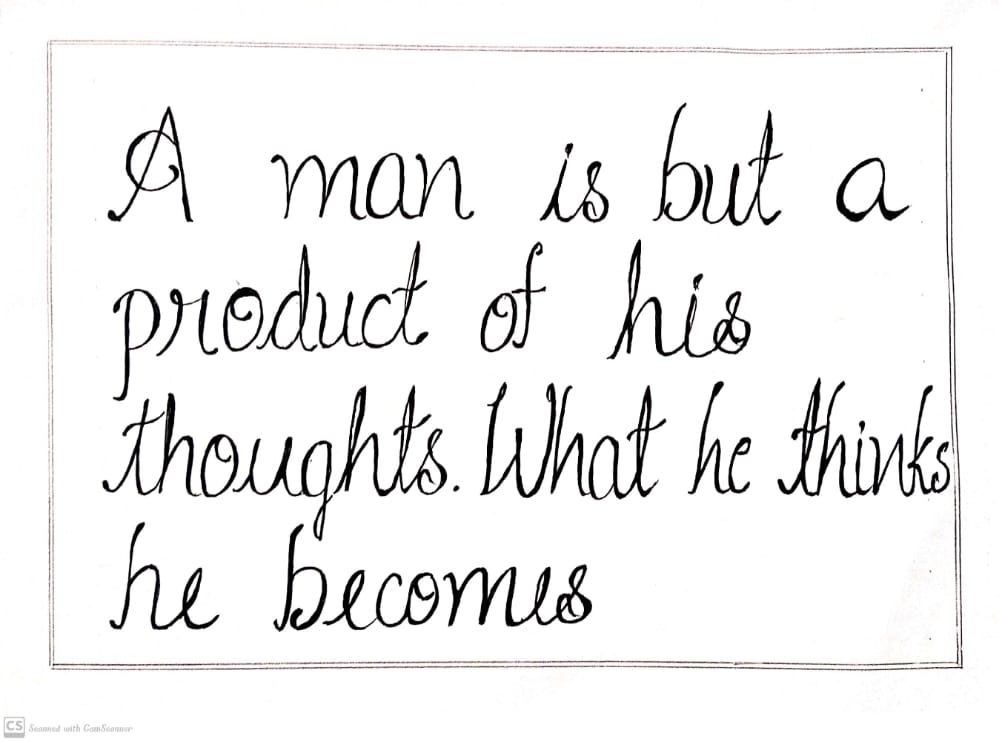 A man is but a
product of his
thoughts. What he thinks
he becomes
CS Scanned with CamScanner